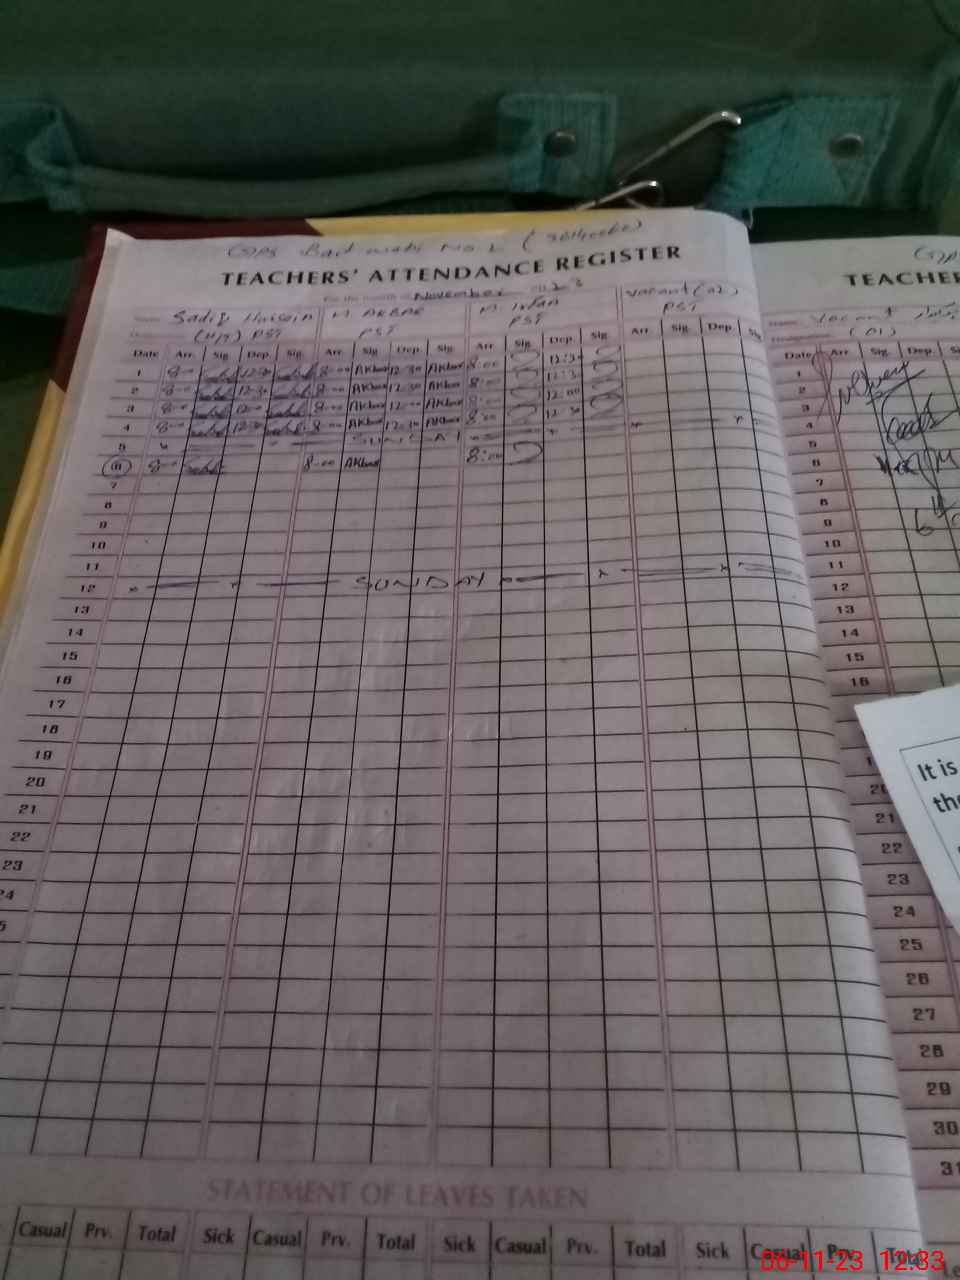 GPS No. 2
TEACHERS' ATTENDANCE REGISTER
For the month of November 2023
Name Sadiq Hussain M. AKBAR M. Irfan Vacant (02)
(H/T) PST PST PST PST
Date Arr. Sig. Dep. Sig. Arr. Sig. Dep. Sig. Arr. Sig. Dep. Sig. Arr. Sig. Dep. Sig.
1 8-00 12-30 8-00 Akbar 12-30 Akbar 8:00 12:30
2 8-00 12-30 8-00 Akbar 12-30 Akbar 8:00 12:30
3 8-00 12-00 8-00 Akbar 12-00 Akbar 8:00 12:00
4 8-00 12-30 8-00 Akbar 12-30 Akbar 8:00 12-30
5 SUNDAY
6 8-00 8-00 Akbar 8:00
7
8
9
10
11
12 SUNDAY
13
14
15
16
17
18
19
20
21
22
23
24
5
STATEMENT OF LEAVES TAKEN
Casual Prv. Total Sick Casual Prv. Total Sick Casual Prv. Total Sick Casual Prv. Total
TEACHER
Vacant
(01)
Date Arr. Sig. Dep.
1
2
3
4
5
6
7
8
9
10
11
12
13
14
15
16
It is
the
21
22
23
24
25
26
27
28
29
30
31
06-11-23 12:33